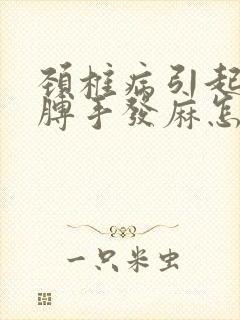 頚椎病引起
脾手發麻怎
一只米虫